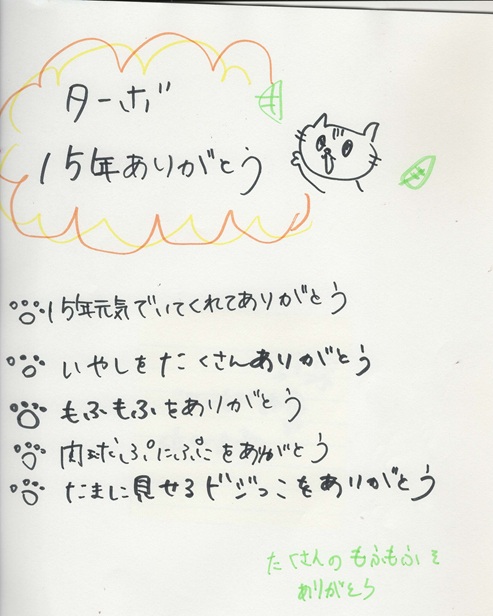 ターボ
15年ありがとう
15年元気でいてくれてありがとう
いやしをたくさんありがとう
もふもふをありがとう
肉球ぷにぷにをありがとう
たまに見せるドジっこをありがとう
たくさんのもふもふを
ありがとう